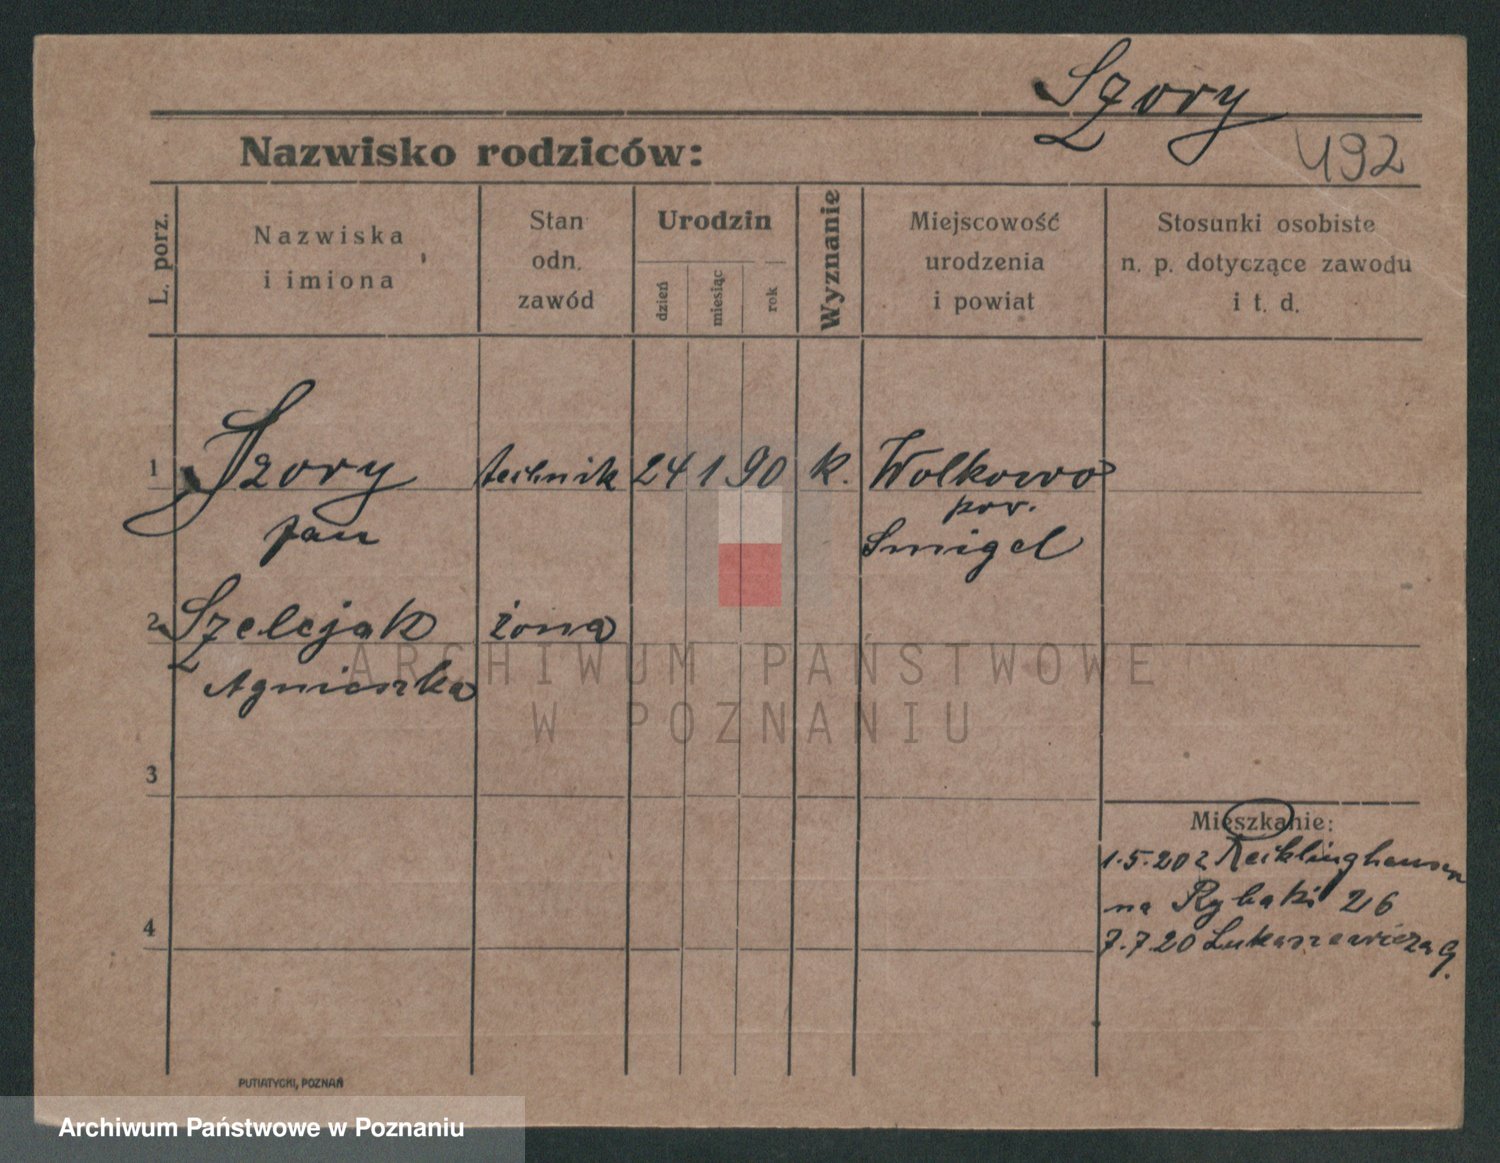 Szory
492
Nazwisko rodziców:
L. porz.
Nazwiska
i imiona
Stan
odn.
zawód
Urodzin
dzień
miesiąc
rok
Wyznanie
Miejscowość
urodzenia
i powiat
Stosunki osobiste
n. p. dotyczące zawodu
i t. d.
1 Szory technik 24 1 90 k. Wolkowo
Jan
pow.
Smigel
2 Szelejak żona
Agnieszka
3
4
Mieszkanie:
1.5.20 z Recklinghausen
na Rybaki 26
7.7.20 Lukaszewicza 9.
PUTIATYCKI, POZNAŃ
ARCHIWUM PAŃSTWOWE
W POZNANIU
Archiwum Państwowe w Poznaniu